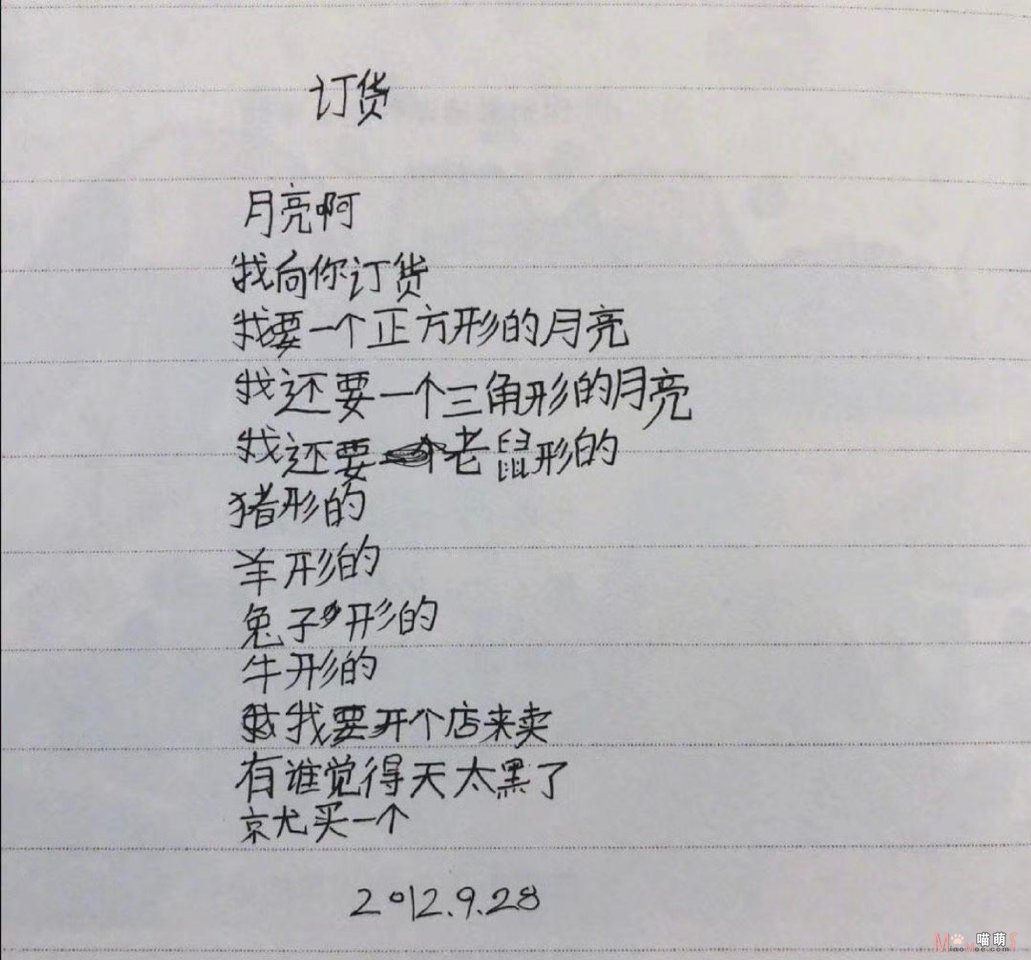 订货
月亮啊
我向你订货
我要一个正方形的月亮
我还要一个三角形的月亮
我还要一个老鼠形的
猪形的
羊形的
兔子形的
牛形的
我要开个店来卖
有谁觉得天太黑了
就买一个
2012.9.28
喵萌